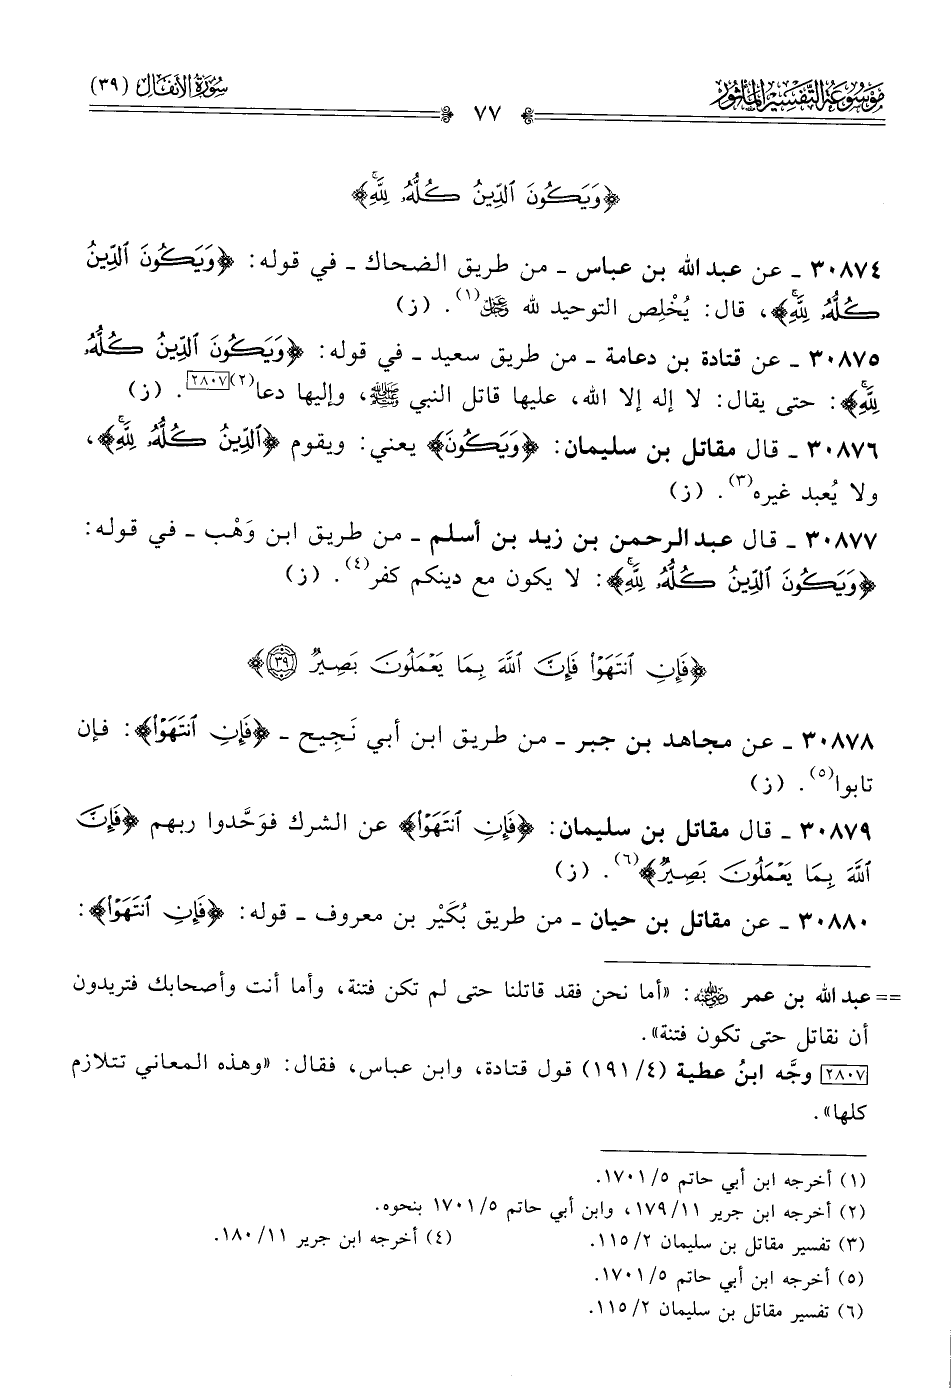 موسوعة التفسير المأثور
سورة الأنفال (٣٩)
٧٧
﴿وَيَكُونَ ٱلدِّينُ كُلُّهُۥ لِلَّهِۚ﴾
٣٠٨٧٤ ـ عن عبد الله بن عباس ـ من طريق الضحاك ـ في قوله: ﴿وَيَكُونَ ٱلدِّينُ
كُلُّهُۥ لِلَّهِۚ﴾، قال: يُخْلِص التوحيد لله ﷿(١). (ز)
٣٠٨٧٥ ـ عن قتادة بن دعامة ـ من طريق سعيد ـ في قوله: ﴿وَيَكُونَ ٱلدِّينُ كُلُّهُۥ
لِلَّهِۚ﴾: حتى يقال: لا إله إلا الله، عليها قاتل النبي ﷺ، وإليها دعا(٢)[٢٨٠٧]. (ز)
٣٠٨٧٦ ـ قال مقاتل بن سليمان: ﴿وَيَكُونَ﴾ يعني: ويقوم ﴿ٱلدِّينُ كُلُّهُۥ لِلَّهِۚ﴾،
ولا يُعبد غيره(٣). (ز)
٣٠٨٧٧ ـ قال عبد الرحمن بن زيد بن أسلم ـ من طريق ابن وَهْب ـ في قوله:
﴿وَيَكُونَ ٱلدِّينُ كُلُّهُۥ لِلَّهِۚ﴾: لا يكون مع دينكم كفر(٤). (ز)
﴿فَإِنِ ٱنتَهَوۡاْ فَإِنَّ ٱللَّهَ بِمَا يَعۡمَلُونَ بَصِيرٞ ٣٩﴾
٣٠٨٧٨ ـ عن مجاهد بن جبر ـ من طريق ابن أبي نَجِيح ـ ﴿فَإِنِ ٱنتَهَوۡاْ﴾: فإن
تابوا(٥). (ز)
٣٠٨٧٩ ـ قال مقاتل بن سليمان: ﴿فَإِنِ ٱنتَهَوۡاْ﴾ عن الشرك فوَحَّدوا ربهم ﴿فَإِنَّ
ٱللَّهَ بِمَا يَعۡمَلُونَ بَصِيرٞ﴾(٦). (ز)
٣٠٨٨٠ ـ عن مقاتل بن حيان ـ من طريق بُكَيْر بن معروف ـ قوله: ﴿فَإِنِ ٱنتَهَوۡاْ﴾:
== عبد الله بن عمر ﵄: «أما نحن فقد قاتلنا حتى لم تكن فتنة، وأما أنت وأصحابك فتريدون
أن نقاتل حتى تكون فتنة».
[٢٨٠٧] وجَّه ابنُ عطية (٤/ ١٩١) قول قتادة، وابن عباس، فقال: «وهذه المعاني تتلازم
كلها».
(١) أخرجه ابن أبي حاتم ٥/ ١٧٠١.
(٢) أخرجه ابن جرير ١١/ ١٧٩، وابن أبي حاتم ٥/ ١٧٠١ بنحوه.
(٣) تفسير مقاتل بن سليمان ٢/ ١١٥. (٤) أخرجه ابن جرير ١١/ ١٨٠.
(٥) أخرجه ابن أبي حاتم ٥/ ١٧٠١.
(٦) تفسير مقاتل بن سليمان ٢/ ١١٥.